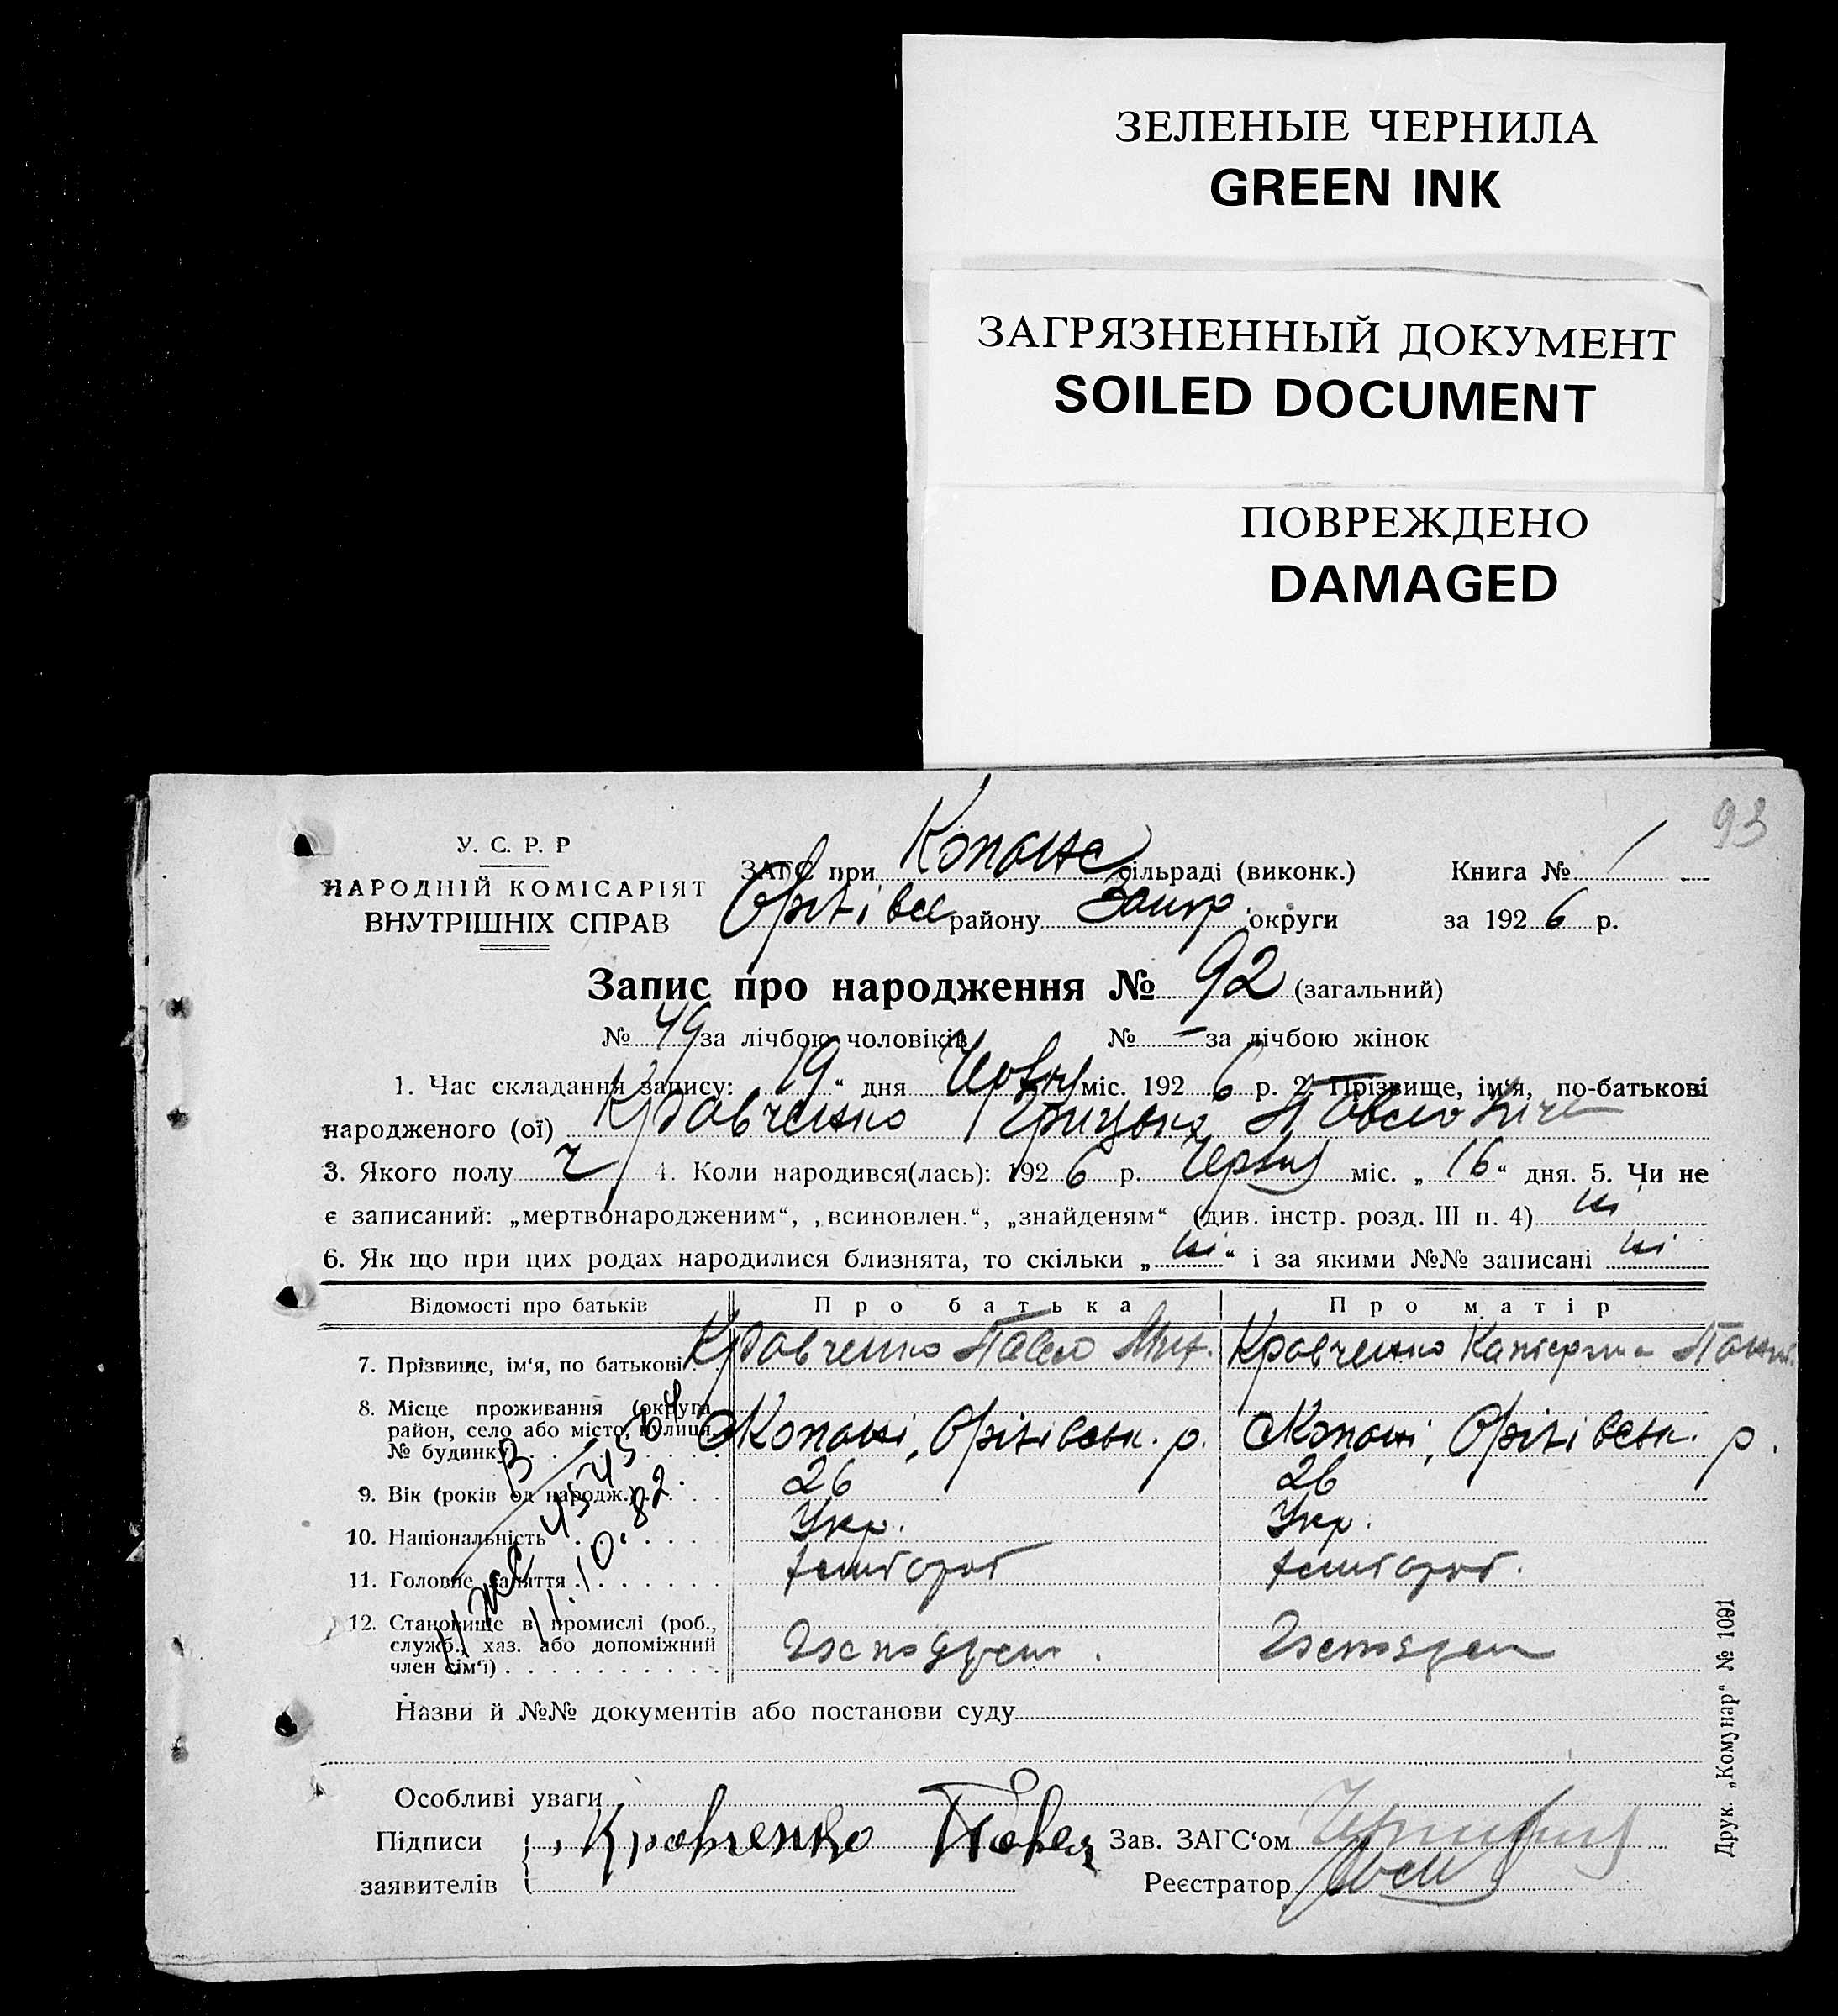 ЗЕЛЕНЫЕ ЧЕРНИЛА
GREEN INK
ЗАГРЯЗНЕННЫЙ ДОКУМЕНТ
SOILED DOCUMENT
ПОВРЕЖДЕНО
DAMAGED
93
У. С. Р. Р
НАРОДНІЙ КОМІСАРІЯТ
ВНУТРІШНІХ СПРАВ
ЗАГС при Копанс сільраді (виконк.)
Оріхівсс району Запор. округи
Книга № 1
за 1926 р.
Запис про народження № 92 (загальний)
№ 49 за лічбою чоловіків № – за лічбою жінок
1. Час складання запису: 19 “ дня Червня міс. 1926 р. 2. Прізвище, ім'я, по-батькові
народженого (ої) Кравченко Грицько Павлович
3. Якого полу ч 4. Коли народився(лась): 1926 р. Червня міс. „ 16 “ дня. 5. Чи не
є записаний: „мертвонародженим“, „всиновлен.“, „знайденям“ (див. інстр. розд. III п. 4) ні
6. Як що при цих родах народилися близнята, то скільки „ ні “ і за якими №№ записані ні
Відомості про батьків Про батька Про матір
7. Прізвище, ім‘я, по батькові Кравченко Павло Мих. Кравченко Катерина
8. Місце проживання (округа,
район, село або місто, вулиця,
№ будинк.) С Копані, Оріхівськ. р. С Копані, Оріхівськ. р.
9. Вік (років од народж.) 26 26
10. Національність Укр. Укр.
11. Головне заняття хлібороб хлібороб.
12. Становище в промислі (роб.,
служб., хаз. або допоміжний
член сім‘ї)
11.10.82.
Назви й №№ документів або постанови суду
Особливі уваги
Підписи
заявителів
Кравченко Павел
Зав. ЗАГС‘ом
Реєстратор
Друк. „Комунар“ № 1091